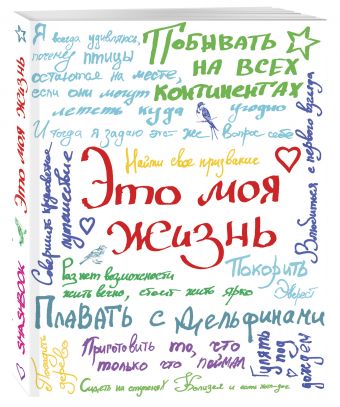 Я всегда удивляюсь,
почему птицы
остаются на месте,
если они могут
лететь куда угодно
И тогда я задаю это же вопрос себе
Побывать
на всех
континентах
Найти свое призвание
Это моя
жизнь
Совершить кругосветное
путешествие
Влюбиться с первого взгляда
Раз нет возможности
жить вечно, стоит жить ярко
Покорить
Эверест
Плавать с дельфинами
Посадить
дерево
Приготовить то, что
только что поймал
Гулять
под
дождем
Сидеть на ступенях
SMASHBOOK Это моя жизнь